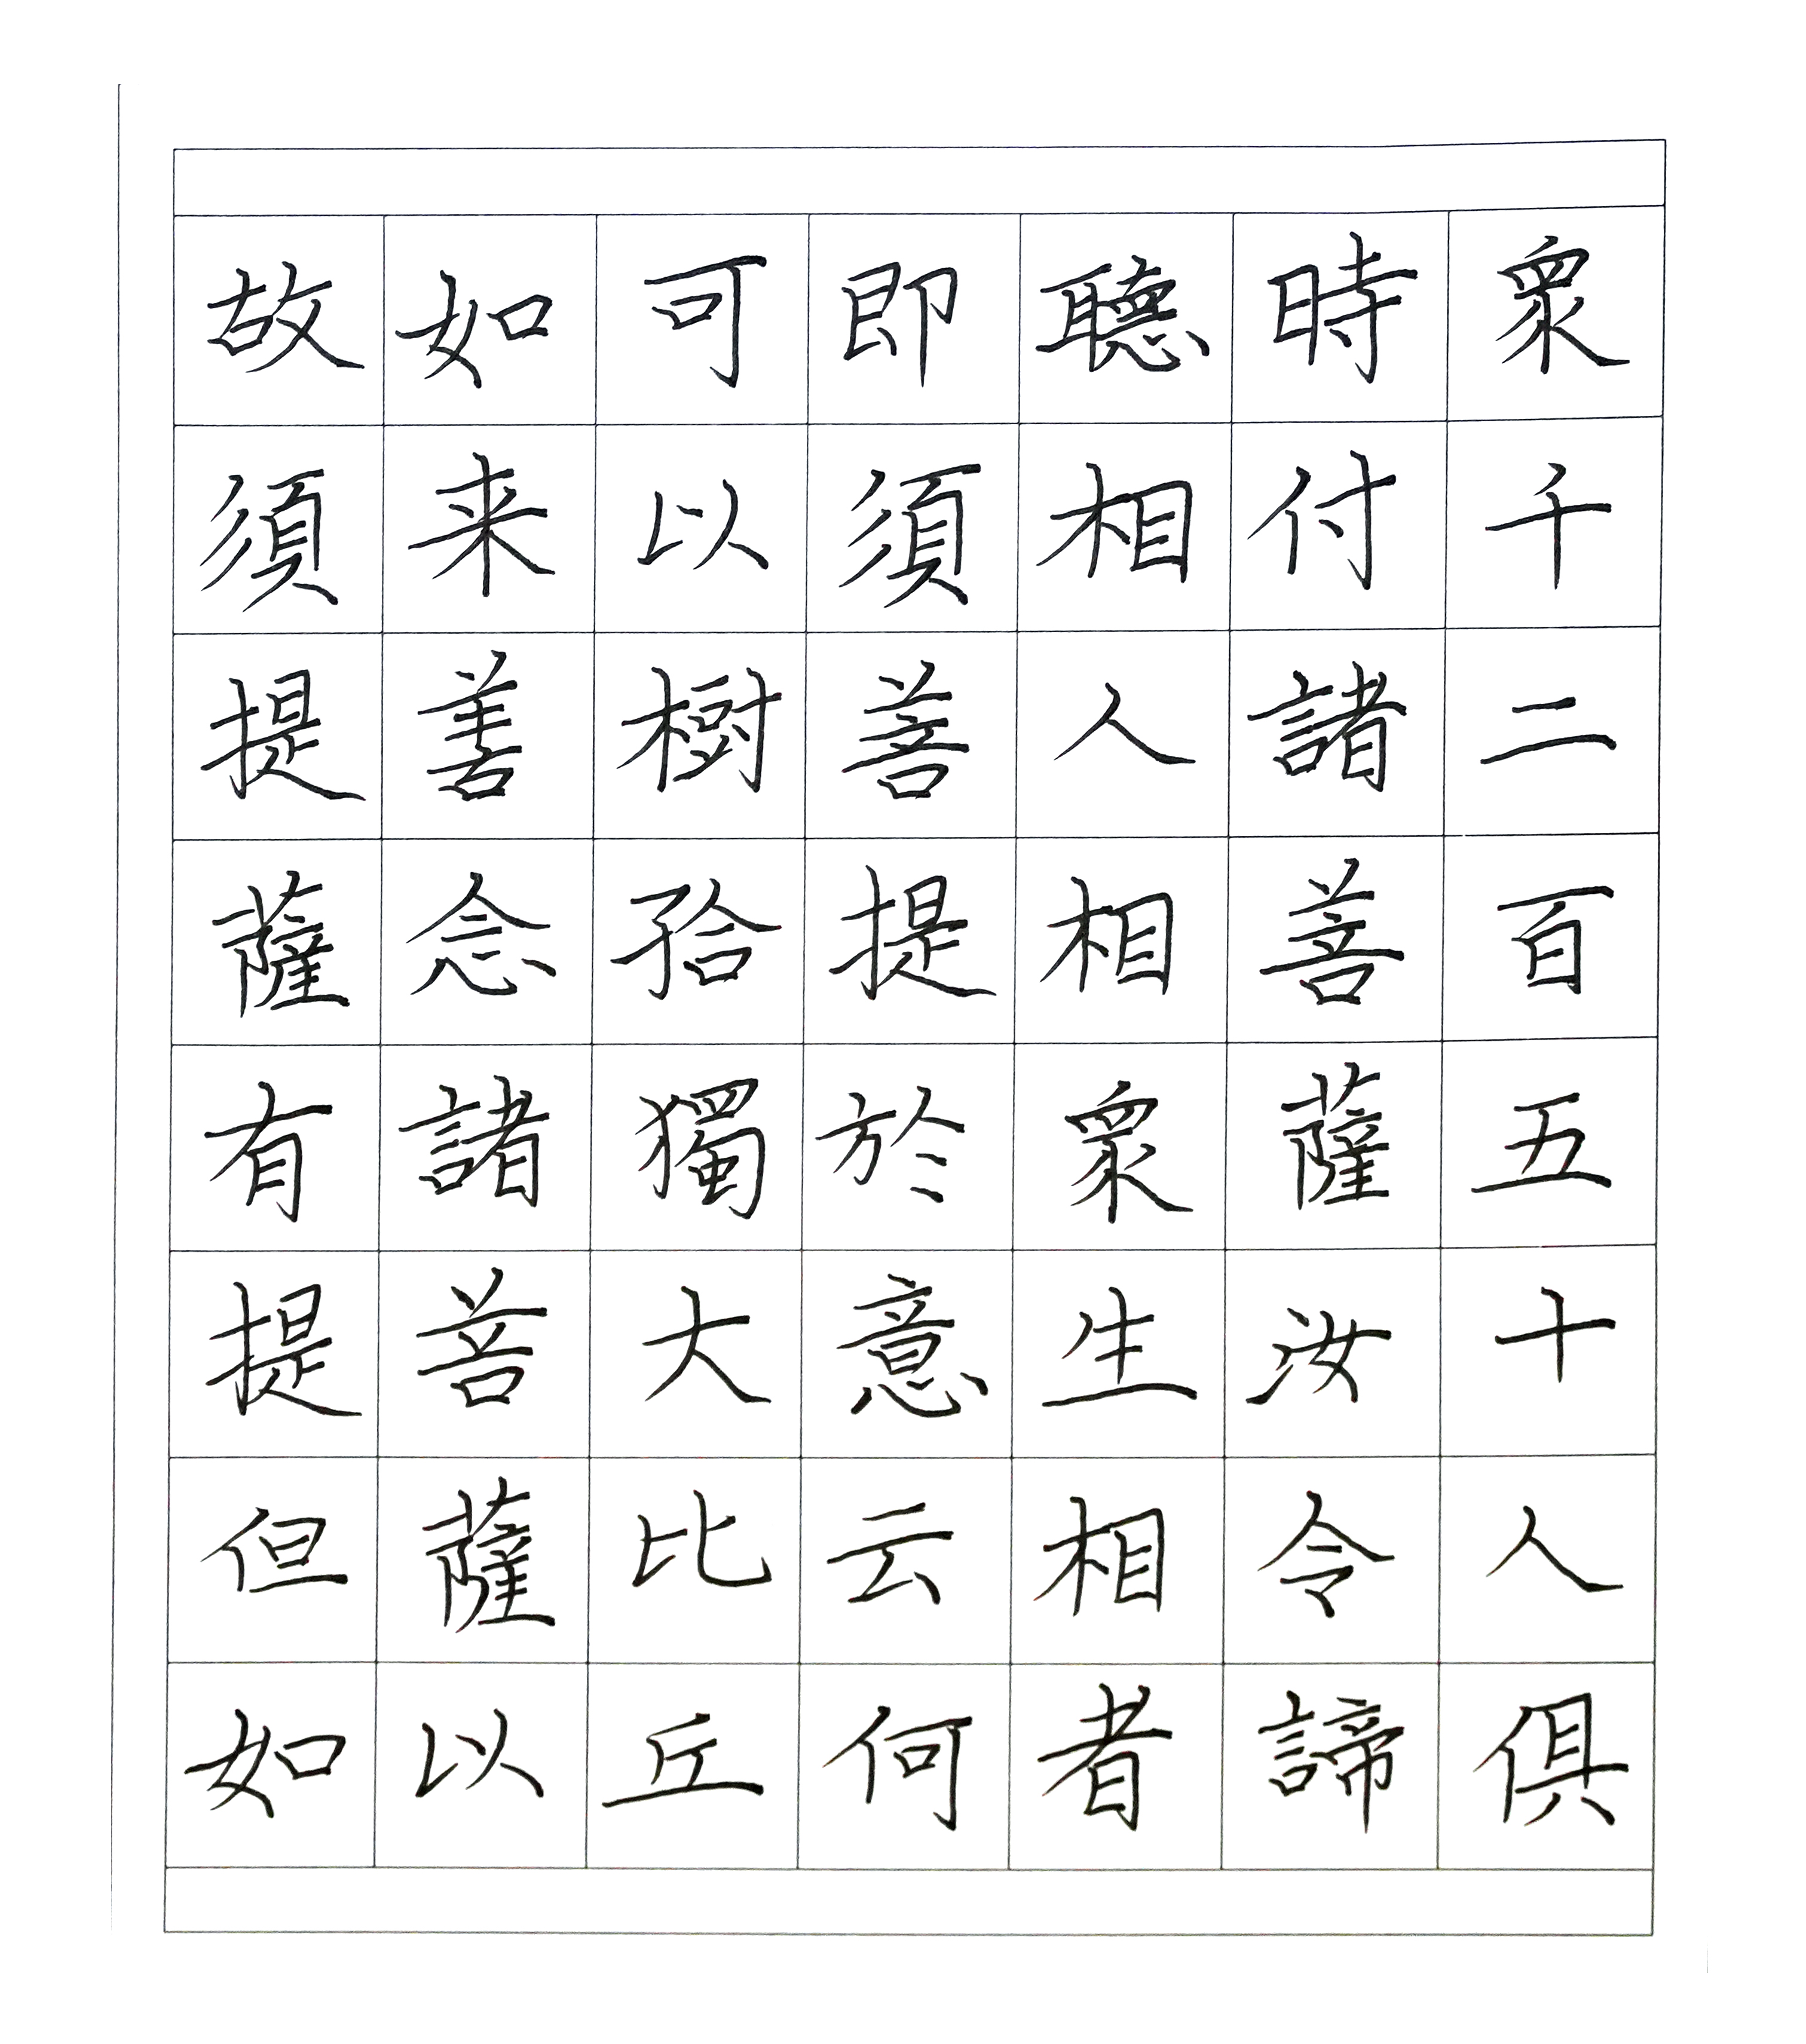 衆千二百五十人俱
時付諸菩薩汝令諦
聽相人相衆生相者
即須菩提於意云何
可以樹給獨大比丘
如来善念諸菩薩以
故須提薩有提但如